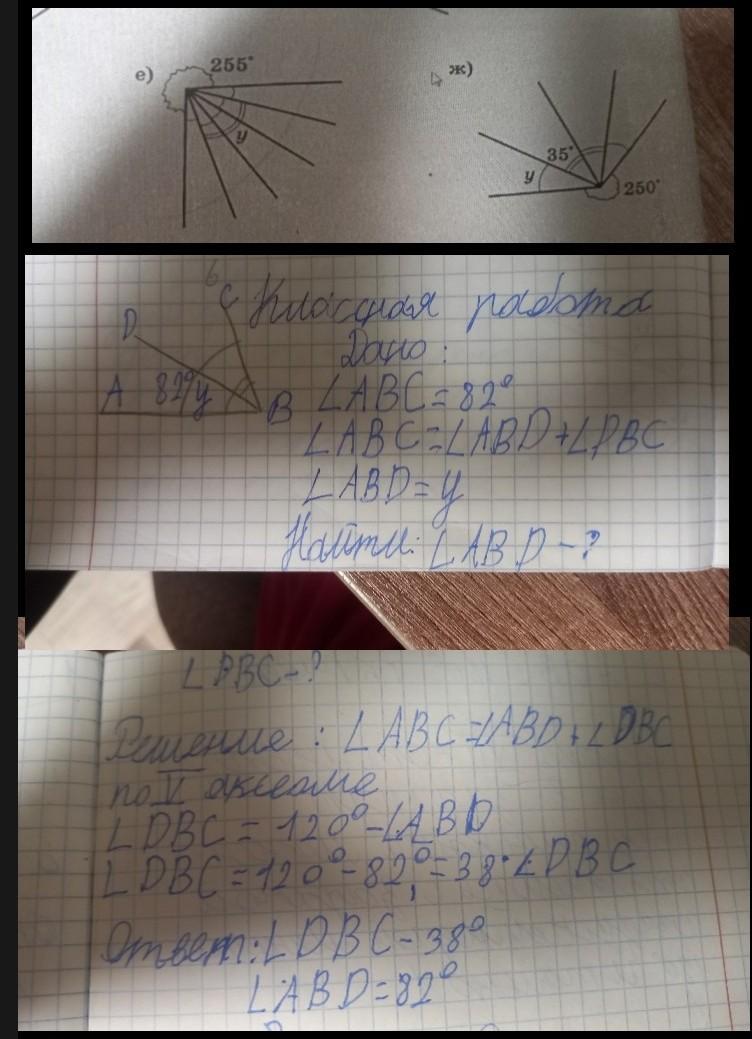 е) 255°
у
ж)
35°
у
250°
б
С Классная работа
D Дано:
А 82° у В ∠ABC = 82°
∠ABC = ∠ABD + ∠DBC
∠ABD = y
Найти: ∠ABD - ?
∠DBC - ?
Решение: ∠ABC = ∠ABD + ∠DBC
по V аксеоме
∠DBC = 120° - ∠ABD
∠DBC = 120° - 82° = 38° ∠DBC
Ответ: ∠DBC - 38°
∠ABD = 82°